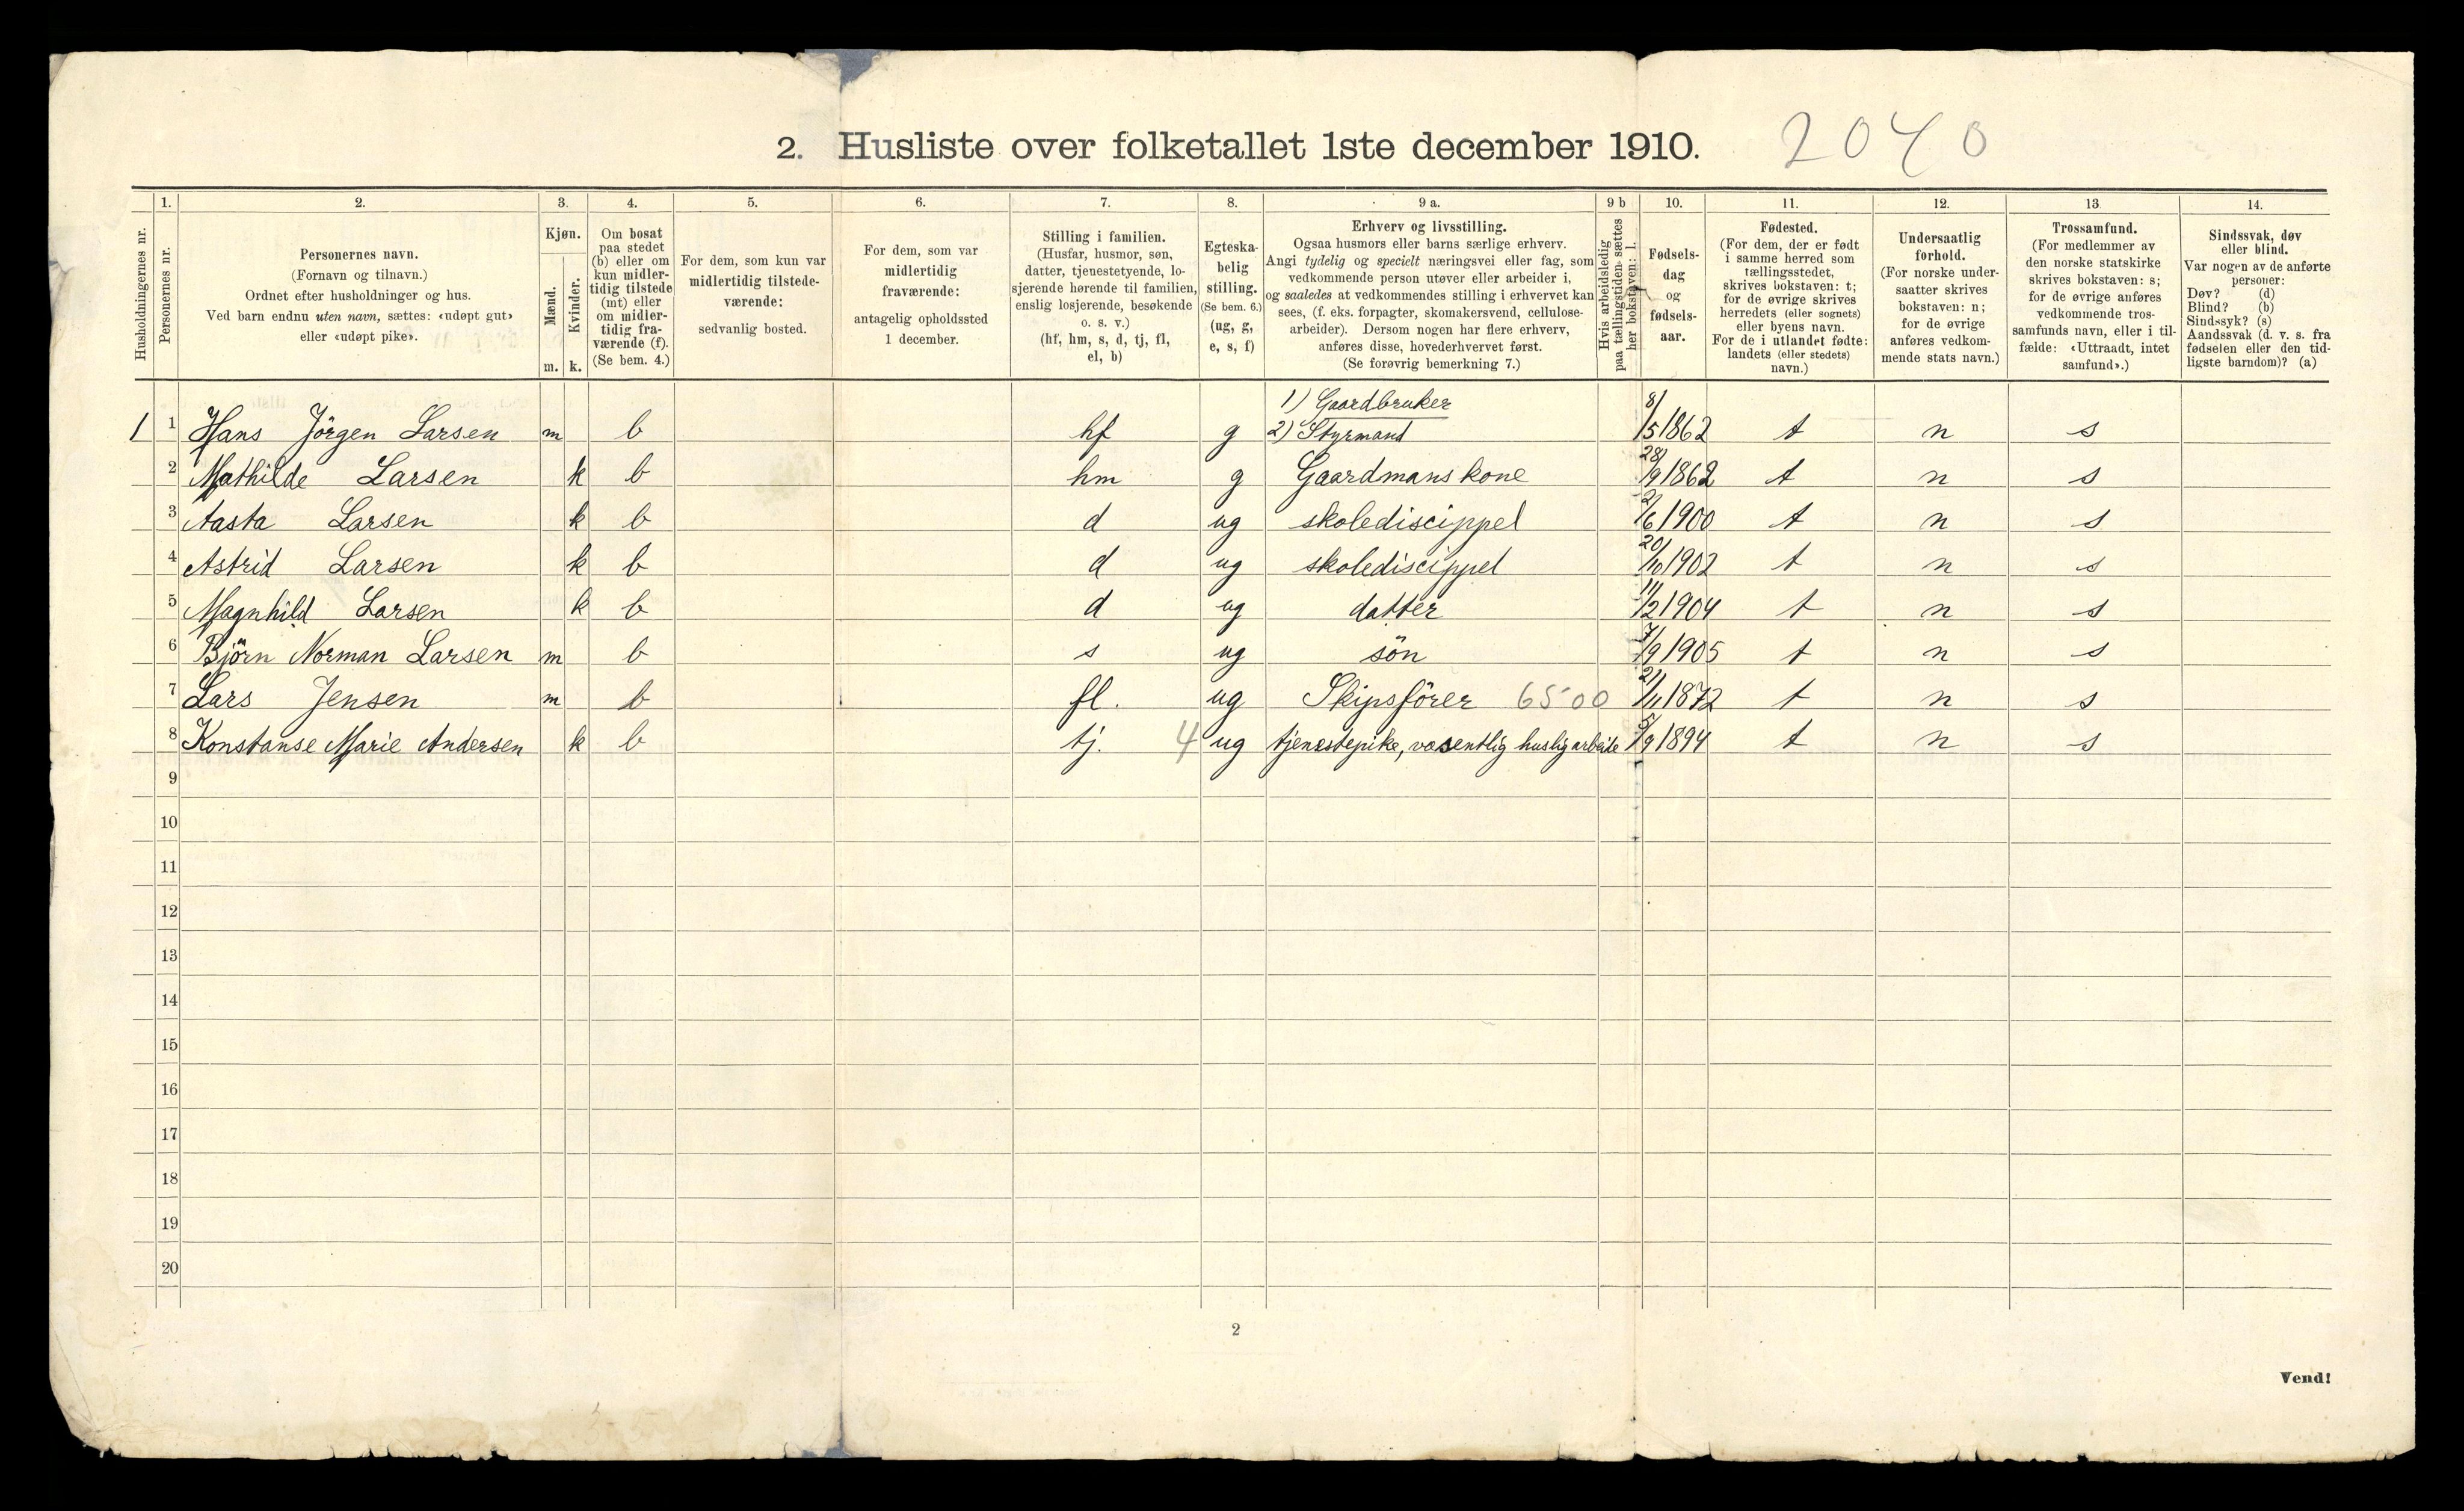 2. Husliste over folketallet 1ste december 1910. 2040
1. 2. 3. 4. 5. 6. 7. 8. 9 a. 9 b 10. 11. 12. 13. 14.
Husholdningernes nr.
Personernes nr.
Personernes navn.
(Fornavn og tilnavn.)
Ordnet efter husholdninger og hus.
Ved barn endnu uten navn, sættes: «udøpt gut»
eller «udøpt pike».
Kjøn.
Mænd.
Kvinder.
m. k.
Om bosat
paa stedet
(b) eller om
kun midler-
tidig tilstede
(mt) eller
om midler-
tidig fra-
værende (f).
(Se bem. 4.)
For dem, som kun var
midlertidig tilstede-
værende:
sedvanlig bosted.
For dem, som var
midlertidig
fraværende:
antagelig opholdssted
1 december.
Stilling i familien.
(Husfar, husmor, søn,
datter, tjenestetyende, lo-
sjerende hørende til familien,
enslig losjerende, besøkende
o. s. v.)
(hf, hm, s, d, tj, fl,
el, b)
Egteska-
belig
stilling.
(Se bem. 6.)
(ug, g,
e, s, f)
Erhverv og livsstilling.
Ogsaa husmors eller barns særlige erhverv.
Angi tydelig og specielt næringsvei eller fag, som
vedkommende person utøver eller arbeider i,
og saaledes at vedkommendes stilling i erhvervet kan
sees, (f. eks. forpagter, skomakersvend, cellulose-
arbeider). Dersom nogen har flere erhverv,
anføres disse, hovederhvervet først.
(Se forøvrig bemerkning 7.)
Hvis arbeidsledig
paa tællingstiden sættes
her bokstaven: l.
Fødsels-
dag
og
fødsels-
aar.
Fødested.
(For dem, der er født
i samme herred som
tællingsstedet,
skrives bokstaven: t;
for de øvrige skrives
herredets (eller sognets)
eller byens navn.
For de i utlandet fødte:
landets (eller stedets)
navn.)
Undersaatlig
forhold.
(For norske under-
saatter skrives
bokstaven: n;
for de øvrige
anføres vedkom-
mende stats navn.)
Trossamfund.
(For medlemmer av
den norske statskirke
skrives bokstaven: s;
for de øvrige anføres
vedkommende tros-
samfunds navn, eller i til-
fælde: «Uttraadt, intet
samfund».)
Sindssvak, døv
eller blind.
Var nogen av de anførte
personer:
Døv? (d)
Blind? (b)
Sindssyk? (s)
Aandssvak (d. v. s. fra
fødselen eller den tid-
ligste barndom)? (a)
1) Gaardbruker
1 1 Hans Jörgen Larsen m b hf g 2) Styrmand 8/5 1862 t n s
2 Mathilde Larsen k b hm g Gaardmanskone 28/9 1862 t n s
3 Aasta Larsen k b d ug skolediscippel 2/6 1900 t n s
4 Astrid Larsen k b d ug skolediscippel 20/10 1902 t n s
5 Magnhild Larsen k b d ug datter 11/2 1904 t n s
6 Björn Norman Larsen m b s ug sön 7/9 1905 t n s
7 Lars Jensen m b fl. ug Skipsförer 6500 21/11 1872 t n s
8 Konstanse Marie Andersen k b tj. 4 ug tjenestepike, væsentlig huslig arbeide 5/9 1894 t n s
9
10
11
12
13
14
15
16
17
18
19
20
2
Vend!